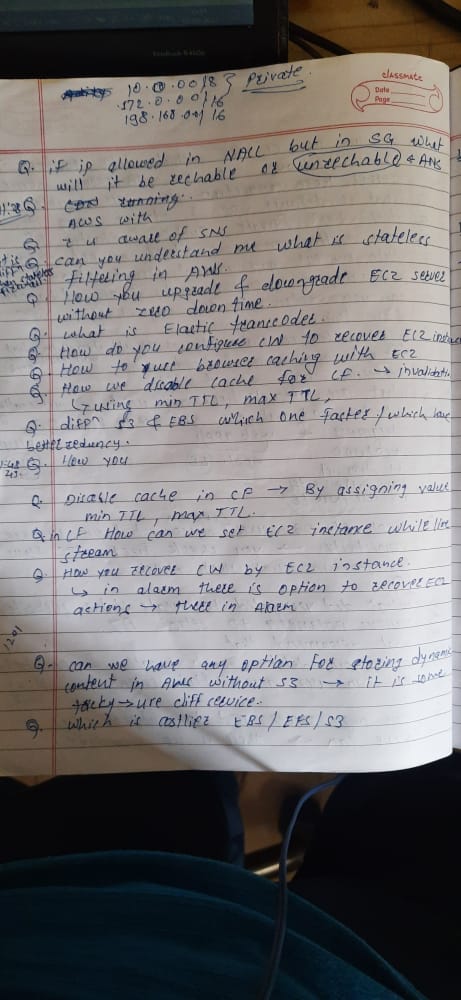 10.0.0.0/8 } Private.
172.0.0.0/16
198.168.0.0/16
classmate
Date
Page
Q. if ip allowed in NACL but in SG what
will it be rechable or unrechable ← ANS
Q. CDN running.
AWS with
Q r u aware of SNS
Q. can you understand me what is stateless
filtering in AWS.
Q. How you upgrade & downgrade EC2 server
without zero downtime.
Q. what is Elastic transcoder.
Q. How do you configure CW to recover EC2 instance
Q. How to use browser caching with EC2
Q. How we disable cache for CF. → invalidation
↳ using min TTL, max TTL,
Q. diffn S3 & EBS which one faster / which have
better reduncy.
Q. How you
Q. Disable cache in CF → By assigning value
min TTL, max TTL.
Q. in CF How can we set EC2 instance while live
stream
Q. How you recover CW by EC2 instance.
↳ in alarm there is option to recover EC2
actions → there in Alarm
Q. can we have any option for storing dynamic
content in AWS without S3 → it is some
tricky → use cliff service.
Q. which is costlier EBS / EFS / S3